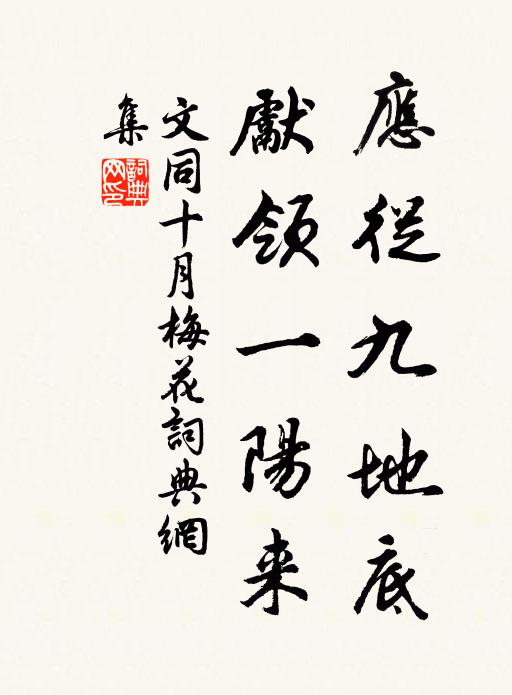 應從九地底
獻領一陽来
文同十月梅花詞典網
集
詞典网印